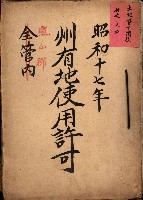 昭和十七年
州有地使用許可
全管内